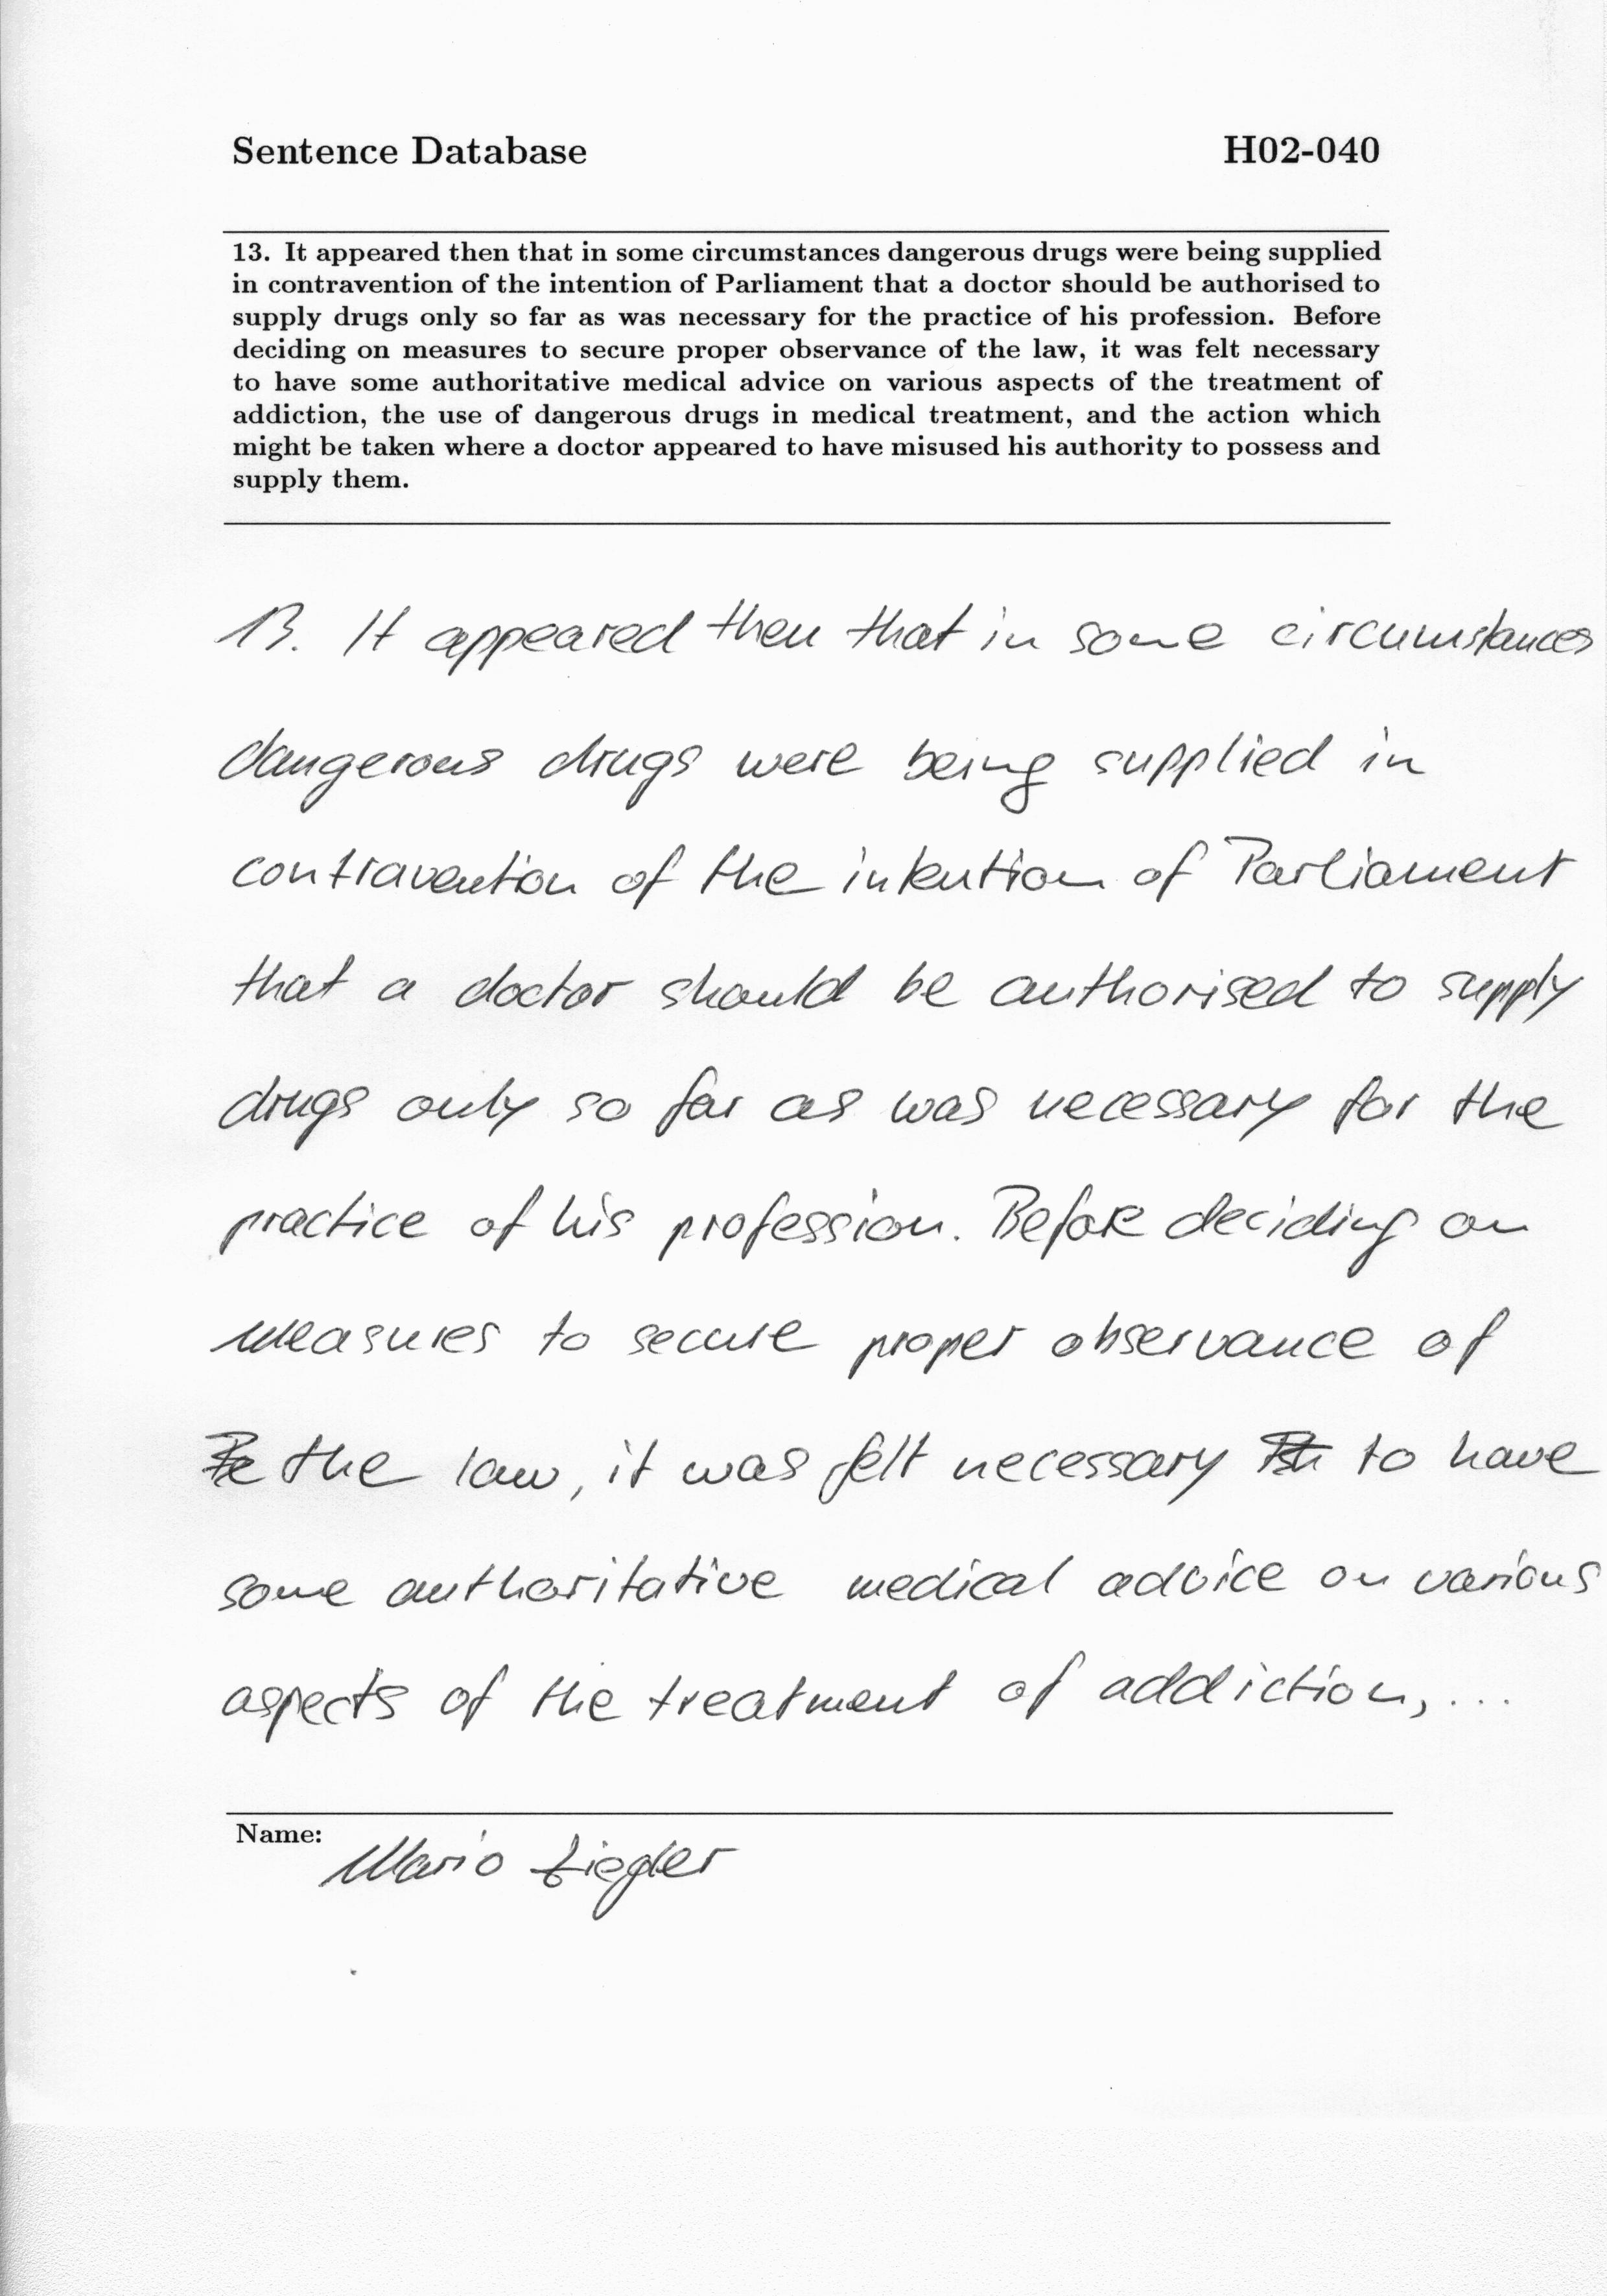 Sentence Database H02-040
13. It appeared then that in some circumstances dangerous drugs were being supplied
in contravention of the intention of Parliament that a doctor should be authorised to
supply drugs only so far as was necessary for the practice of his profession. Before
deciding on measures to secure proper observance of the law, it was felt necessary
to have some authoritative medical advice on various aspects of the treatment of
addiction, the use of dangerous drugs in medical treatment, and the action which
might be taken where a doctor appeared to have misused his authority to possess and
supply them.
13. It appeared then that in some circumstances
dangerous drugs were being supplied in
contravention of the intention of Parliament
that a doctor should be authorised to supply
drugs only so far as was necessary for the
practice of his profession. Before deciding on
measures to secure proper observance of
the law, it was felt necessary to have
some authoritative medical advice on various
aspects of the treatment of addiction, ...
Name:
Mario Ziegler